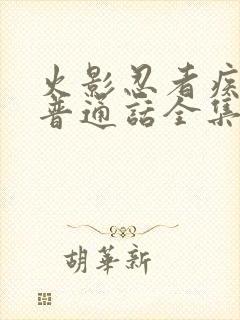 火影忍者疾
普通話全集
胡華新